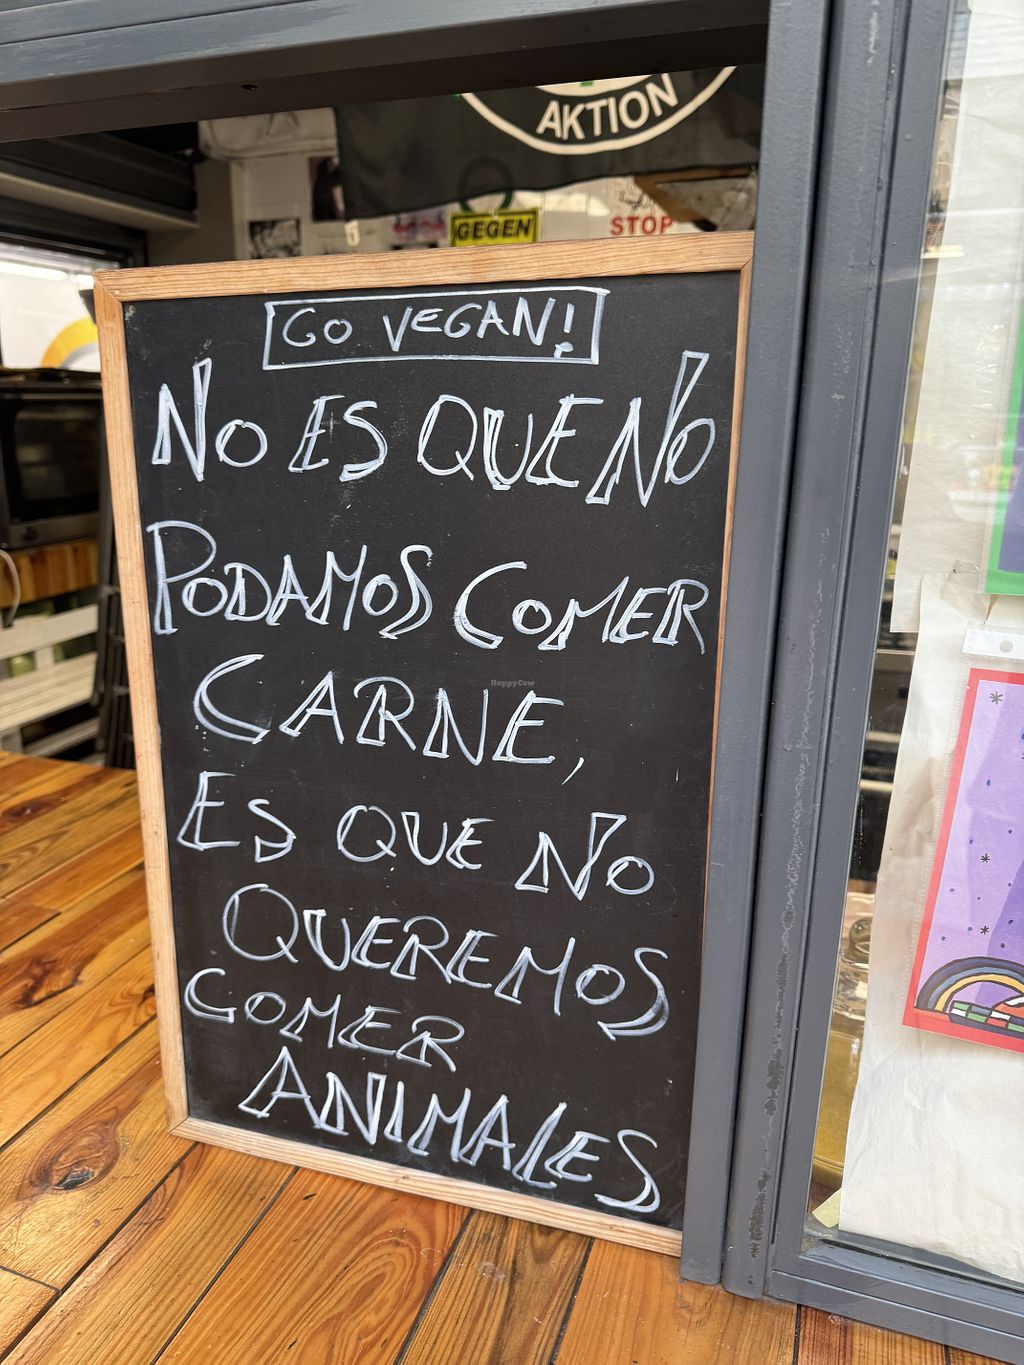 AKTION
GEGEN
STOP
GO VEGAN!
NO ES QUE NO
PODAMOS COMER
CARNE,
ES QUE NO
QUEREMOS
COMER
ANIMALES
HappyCow